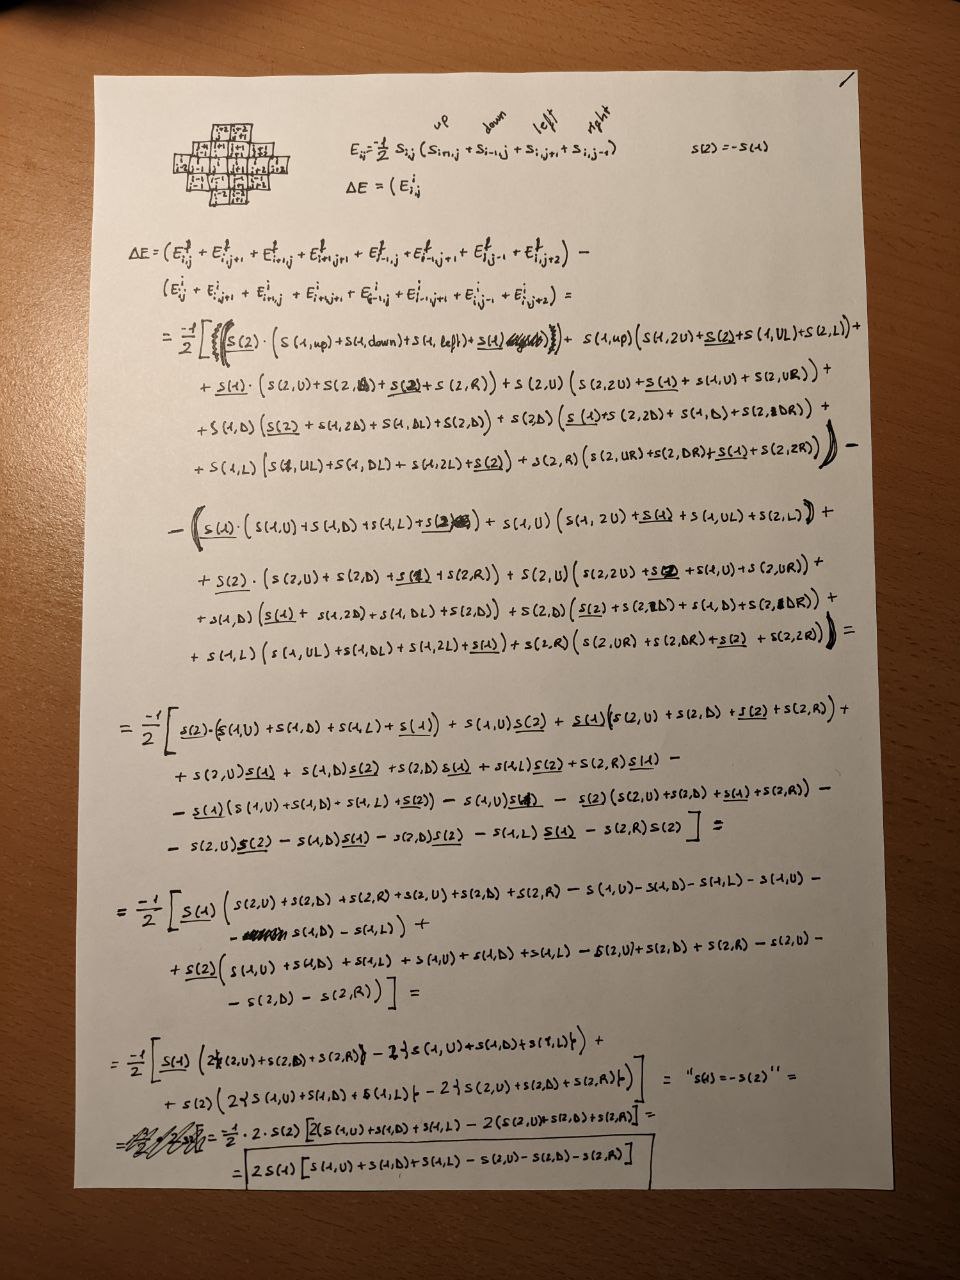 up down left right
E_ij = -1/2 S_ij (S_i+1,j + S_i-1,j + S_i,j+1 + S_i,j-1) S(2) = -S(1)
ΔE = (E^i_i,j
ΔE = (E^f_i,j + E^f_i,j+1 + E^f_i+1,j + E^f_i+1,j+1 + E^f_i-1,j + E^f_i-1,j+1 + E^f_i,j-1 + E^f_i,j+2) -
(E^i_ij + E^i_i,j+1 + E^i_i+1,j + E^i_i+1,j+1 + E^i_i-1,j + E^i_i-1,j+1 + E^i_i,j-1 + E^i_i,j+2) =
= -1/2 [((S(2) · (S(1,up) + S(1,down) + S(1,left) + S(1))) + S(1,up) (S(1,2U) + S(2) + S(1,UL) + S(2,L)) +
+ S(1) · (S(2,U) + S(2,D) + S(2) + S(2,R)) + S(2,U) (S(2,2U) + S(1) + S(1,U) + S(2,UR)) +
+ S(1,D) (S(2) + S(1,2D) + S(1,DL) + S(2,D)) + S(2,D) (S(1) + S(2,2D) + S(1,D) + S(2,DR)) +
+ S(1,L) (S(1,UL) + S(1,DL) + S(1,2L) + S(2)) + S(2,R) (S(2,UR) + S(2,DR) + S(1) + S(2,2R))) -
- (S(1) · (S(1,U) + S(1,D) + S(1,L) + S(2)) + S(1,U) (S(1,2U) + S(1) + S(1,UL) + S(2,L)) +
+ S(2) · (S(2,U) + S(2,D) + S(1) + S(2,R)) + S(2,U) (S(2,2U) + S(2) + S(1,U) + S(2,UR)) +
+ S(1,D) (S(1) + S(1,2D) + S(1,DL) + S(2,D)) + S(2,D) (S(2) + S(2,2D) + S(1,D) + S(2,DR)) +
+ S(1,L) (S(1,UL) + S(1,DL) + S(1,2L) + S(1)) + S(2,R) (S(2,UR) + S(2,DR) + S(2) + S(2,2R))) =
= -1/2 [S(2) · (S(1,U) + S(1,D) + S(1,L) + S(1)) + S(1,U) S(2) + S(1) (S(2,U) + S(2,D) + S(2) + S(2,R)) +
+ S(2,U) S(1) + S(1,D) S(2) + S(2,D) S(1) + S(1,L) S(2) + S(2,R) S(1) -
- S(1) (S(1,U) + S(1,D) + S(1,L) + S(2)) - S(1,U) S(1) - S(2) (S(2,U) + S(2,D) + S(1) + S(2,R)) -
- S(2,U) S(2) - S(1,D) S(1) - S(2,D) S(2) - S(1,L) S(1) - S(2,R) S(2)] =
= -1/2 [S(1) (S(2,U) + S(2,D) + S(2,R) + S(2,U) + S(2,D) + S(2,R) - S(1,U) - S(1,D) - S(1,L) - S(1,U) -
- S(1,D) - S(1,L)) +
+ S(2) (S(1,U) + S(1,D) + S(1,L) + S(1,U) + S(1,D) + S(1,L) - S(2,U) + S(2,D) + S(2,R) - S(2,U) -
- S(2,D) - S(2,R))] =
= -1/2 [S(1) (2{S(2,U) + S(2,D) + S(2,R)} - 2{S(1,U) + S(1,D) + S(1,L)}) +
+ S(2) (2{S(1,U) + S(1,D) + S(1,L)} - 2{S(2,U) + S(2,D) + S(2,R)})] = "S(1) = -S(2)" =
= -1/2 · 2 · S(2) [2(S(1,U) + S(1,D) + S(1,L) - 2(S(2,U) + S(2,D) + S(2,R)] =
= 2S(1) [S(1,U) + S(1,D) + S(1,L) - S(2,U) - S(2,D) - S(2,R)]